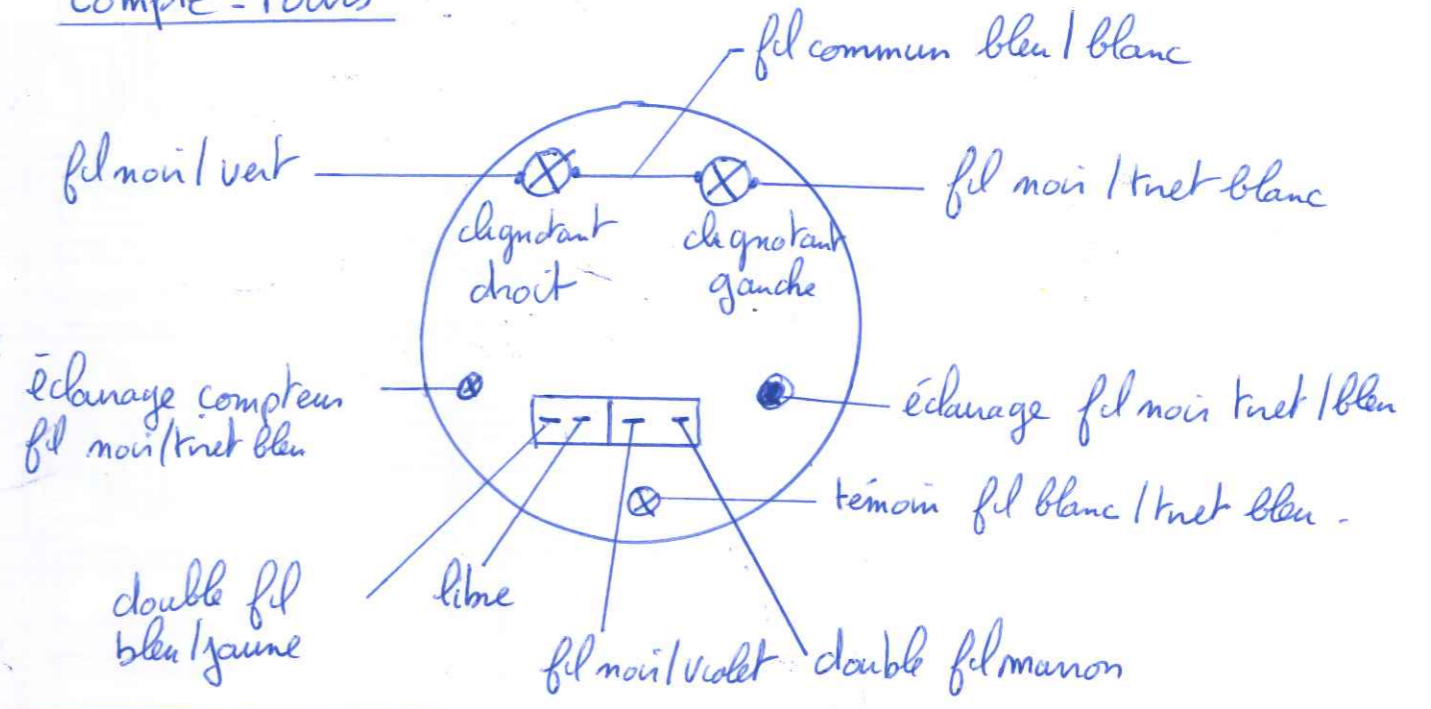 Compte-Tours
fil commun bleu / blanc
fil noir / vert
fil noir / tiret blanc
clignotant
droit
clignotant
gauche
éclairage compteur
fil noir / tiret bleu
éclairage fil noir tiret / bleu
témoin fil blanc / tiret bleu -
double fil
bleu / jaune
libre
fil noir / violet
double fil marron